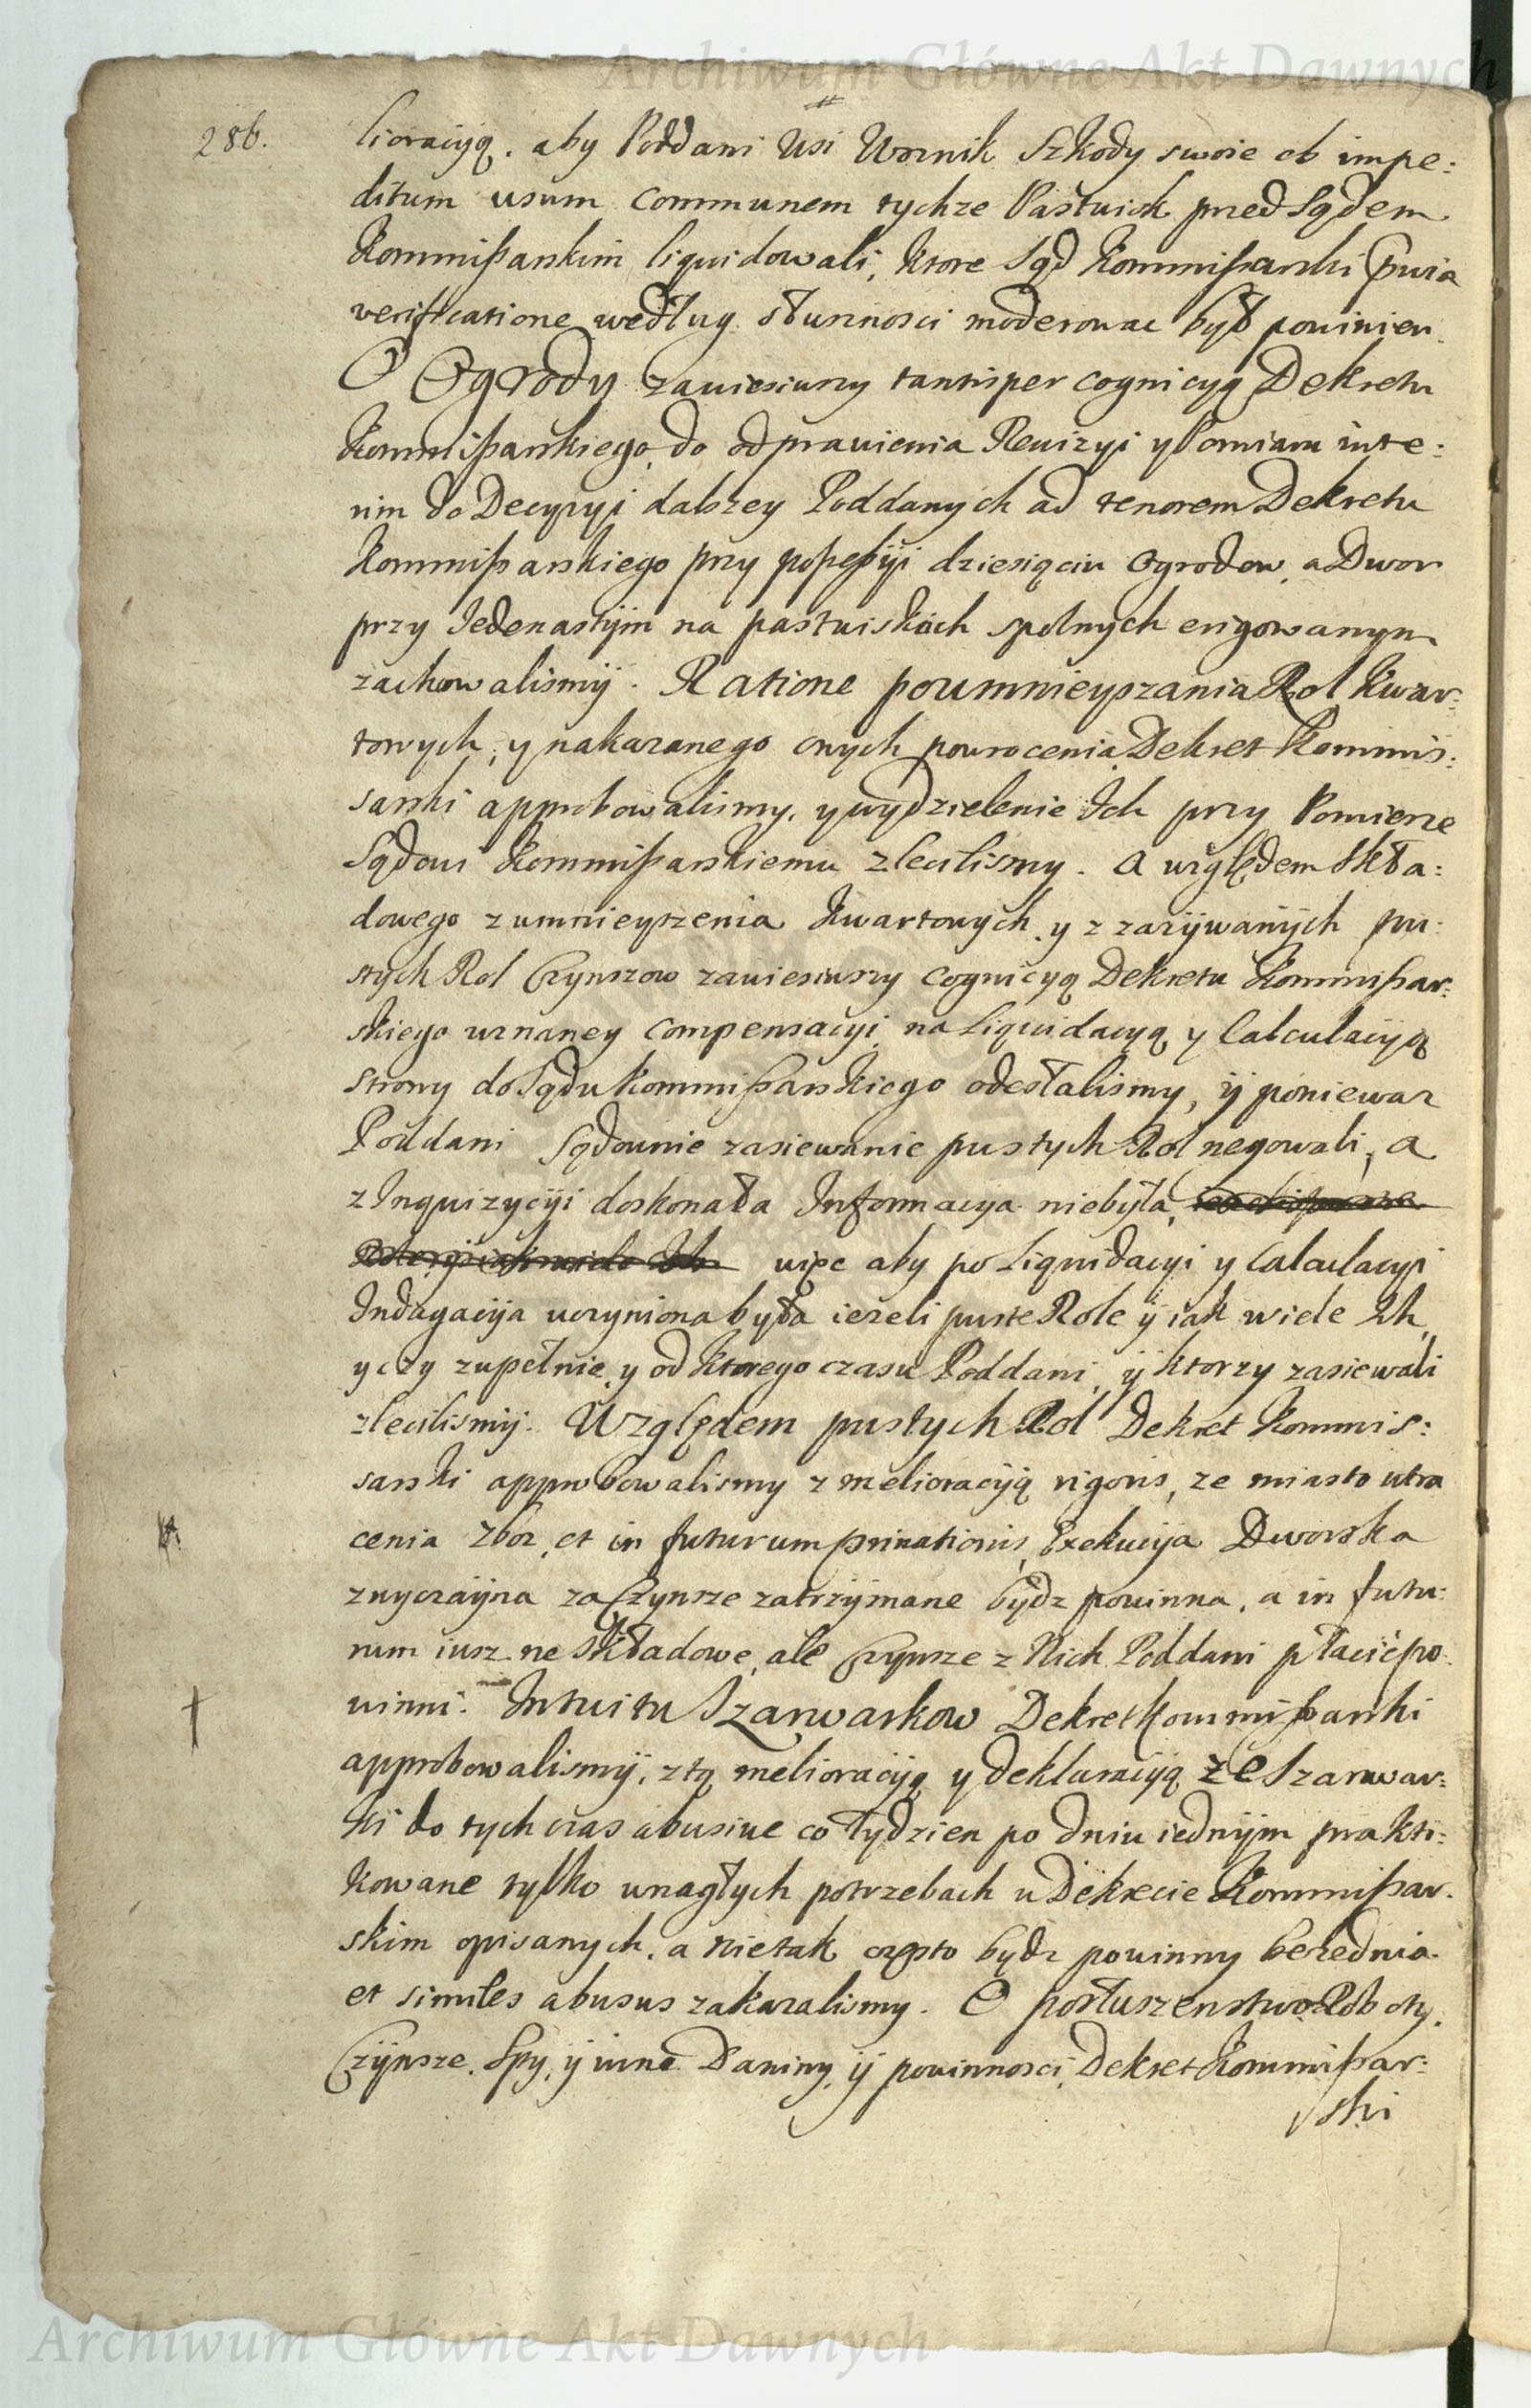 Archiwum Główne Akt Dawnych
286.
lioracyią. aby Poddani Wsi Woznik Szkody swoie ob impe:
ditum usum communem tychze Pastwisk przed Sądem
Kommißarskim liquidowali, ktore Sąd Kommißarski pvia
verificatione według słusznosci moderowac był powinien.
O Ogrody zawiesiwszy tantisper cognicyą Dekretu
Kommißarskiego, do odprawienia Rewizyi y Pomiaru inte:
rim do Decyzyi dalszey Poddanych ad tenorem Dekretu
Kommißarskiego przy poßeßyi dziesiąciu Ogrodow, a Dwor
przy Jedenastÿm na pastwiskach spolnych erigowanym
zachowalismÿ. Ratione poumnieyszania Rol Kwar:
towych, y nakazanego onych powrocenia Dekret Kommis:
sarski approbowalismy, y wydzielenie Ich przy Pomierze
Sądowi Kommißarskiemu zlecilismy. A względem Skła:
dowego z umnieyszenia Kwartowych y z zazÿwanÿch pu:
stych Rol Czynszow zawiesiwszy cognicyą Dekretu Kommißar:
skiego uznaney compensacyi na Liquidacyą y Calculacyią
strony do Sądu Kommißarskiego odesłalismy, ÿ poniewaz
Poddani Sądownie zasiewanie pustych Rol negowali, a
z Inquizycÿi doskonała Informacya niebyła,
więc aby po Liquidacyi y Calculacyi
Indagacÿa uczyniona była iezeli puste Role ÿ iak wiele Ich,
y czy zupełnie, y od ktorego czasu Poddani, ÿ ktorzy zasiewali
zlecilismÿ. Względem pustych Rol Dekret Kommis:
sarski approbowalismy z melioracÿią rigoris, ze miasto utra
cenia Zboz, et in futurum privationis, Exekucÿa Dworska
zwyczaÿna za Czynsze zatrzÿmane bÿdz powinna, a in futu:
rum iusz ne Składowe, ale Czynsze z Nich Poddani płacić po:
winni. Intuitu Szarwarkow Dekret Kommißarski
approbowalismÿ, z tą melioracÿą y deklaracÿą ze Szarwar:
ki do tych czas abusive co Tydzien po dniu iednÿm prakti:
kowane tylko w nagłych potrzebach w Dekrecie Kommißar:
skim opisanych, a nietak często bydz powinny
et similes abusus zakazalismy. O Posłuszenstwo Roboty,
Czÿnsze, Spy, ÿ inne Daniny, ÿ powinnosci, Dekret Kommißar:
ski
Archiwum Główne Akt Dawnych